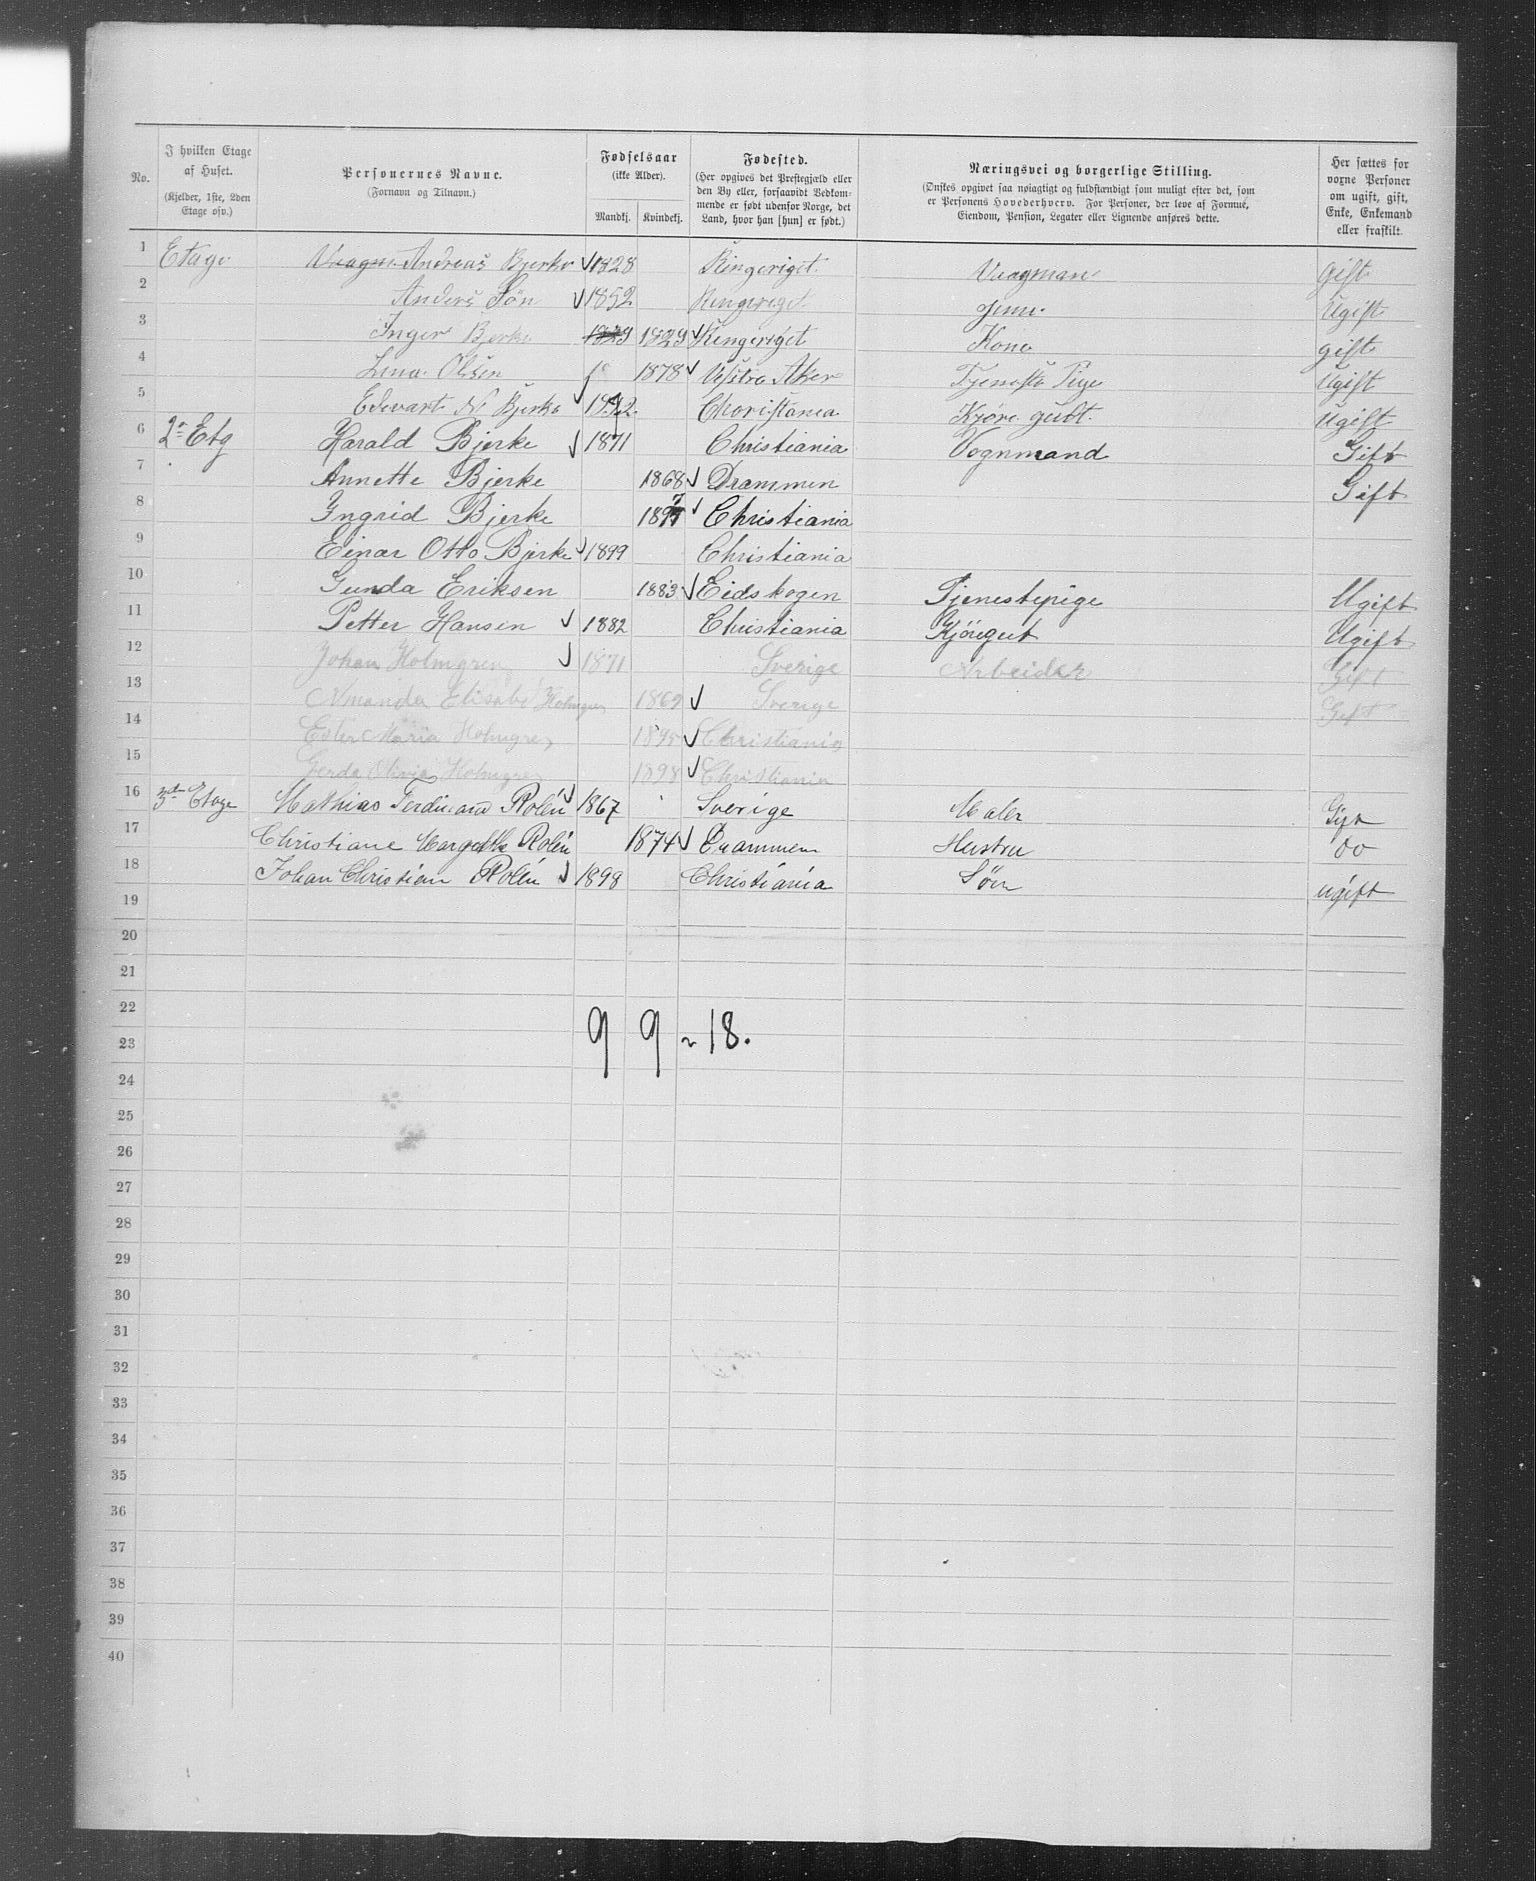 No.
I hvilken Etage af Huset.
(Kjelder, 1ste, 2den Etage osv.)
Personernes Navne.
(Fornavn og Tilnavn.)
Fødselsaar
(ikke Alder).
Mandkj. Kvindekj.
Fødested.
(Her opgives det Prestegjæld eller den By eller, forsaavidt Vedkommende er født udenfor Norge, det Land, hvor han [hun] er født.)
Næringsvei og borgerlige Stilling.
(Ønskes opgivet saa nøiagtigt og fuldstændigt som muligt efter det, som er Personens Hovederhverv. For Personer, der leve af Formue, Eiendom, Pension, Legater eller Lignende anføres dette.
Her sættes for voxne Personer om ugift, gift, Enke, Enkemand eller fraskilt.
1 Etage Andreas Bjerke 1828 Ringeriget Vaagman gift
2 Anders Søn 1852 Ringeriget Ugift
3 Inger Bjerke 1829 1829 Ringeriget Kone gift
4 Lina Olsen 1878 Vestre Aker Tjeneste Pige Ugift
5 Edevart N Bjerke Christania Kjøre gutt Ugift
6 2n Etg Harald Bjerke 1871 Christiania Vognmand Gift
7 Annette Bjerke 1868 Drammen Gift
8 Ingrid Bjerke 1897 Christiania
9 Einar Otto Bjerke 1899 Christiania
10 Gunda Eriksen 1883 Eidskogen Tjenestepige Ugift
11 Petter Hansen 1882 Christiania Kjöregut Ugift
12 Johan Holmgren 1871 Sverige Arbeider Gift
13 Amanda Elisabet Holmgren 1869 Sverige Gift
14 Ester Maria Holmgren 1895 Christiania
15 Gerda Olivia Holmgren 1898 Christiania
16 3die Etage Mathias Ferdinand Rolén 1867 Sverige Maler Gift
17 Christiane Margethe Rolén 1874 Drammen Hustru do
18 Johan Christian Rolén 1898 Christiania Sön ugift
19
20
21
22
9 9 = 18.
23
24
25
26
27
28
29
30
31
32
33
34
35
36
37
38
39
40